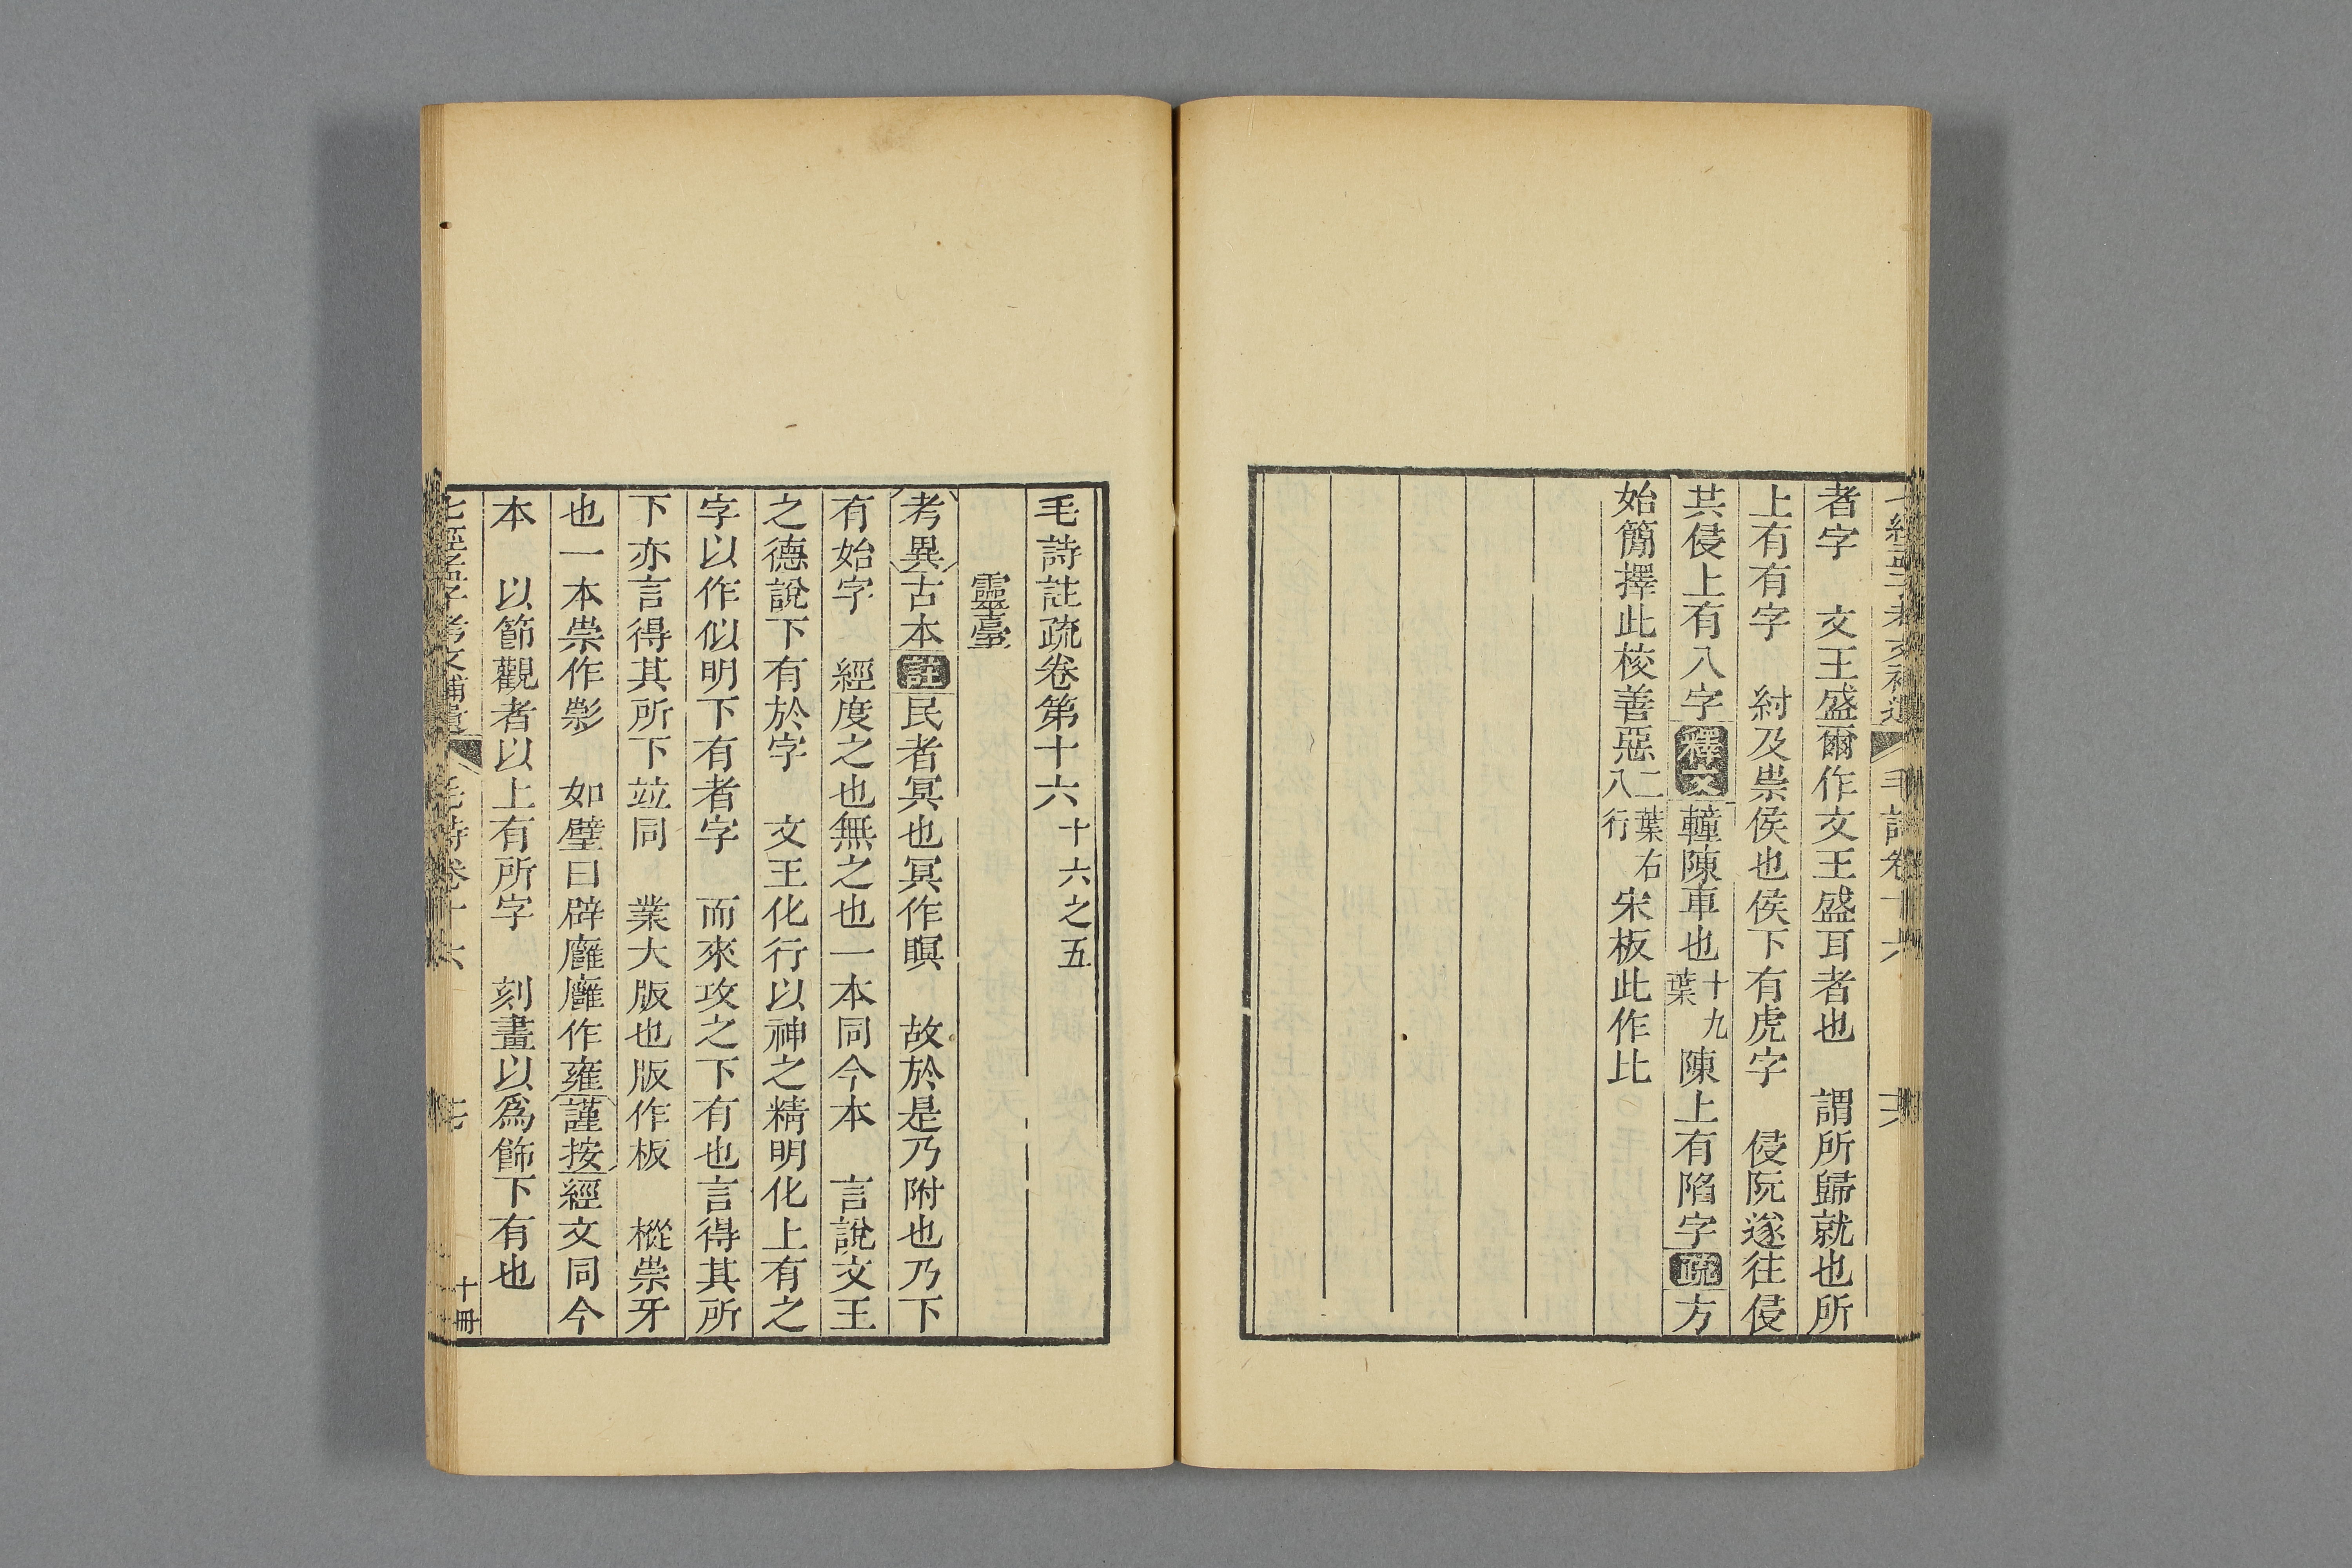 七經孟子考文補遺 毛詩卷十六
者字 文王盛爾作文王盛耳者也 謂所歸就也所
上有有字 紂及崇侯也侯下有虎字 侵阮遂往侵
共侵上有八字釋文䡴陳車也十九葉陳上有陷字疏方
始簡擇此校善惡二葉右八行宋板此作比
毛詩註疏卷第十六十六之五
靈臺
考異古本註民者冥也冥作瞑 故於是乃附也乃下
有始字 經度之也無之也一本同今本 言說文王
之德說下有於字 文王化行以神之精明化上有之
字以作似明下有者字 而來攻之下有也言得其所
下亦言得其所下竝同 業大版也版作板 樅崇牙
也一本崇作㟡 如璧曰辟廱廱作雍謹按經文同今
本 以節觀者以上有所字 刻畫以爲飾下有也
七經孟子考文補遺 毛詩卷十六 十冊